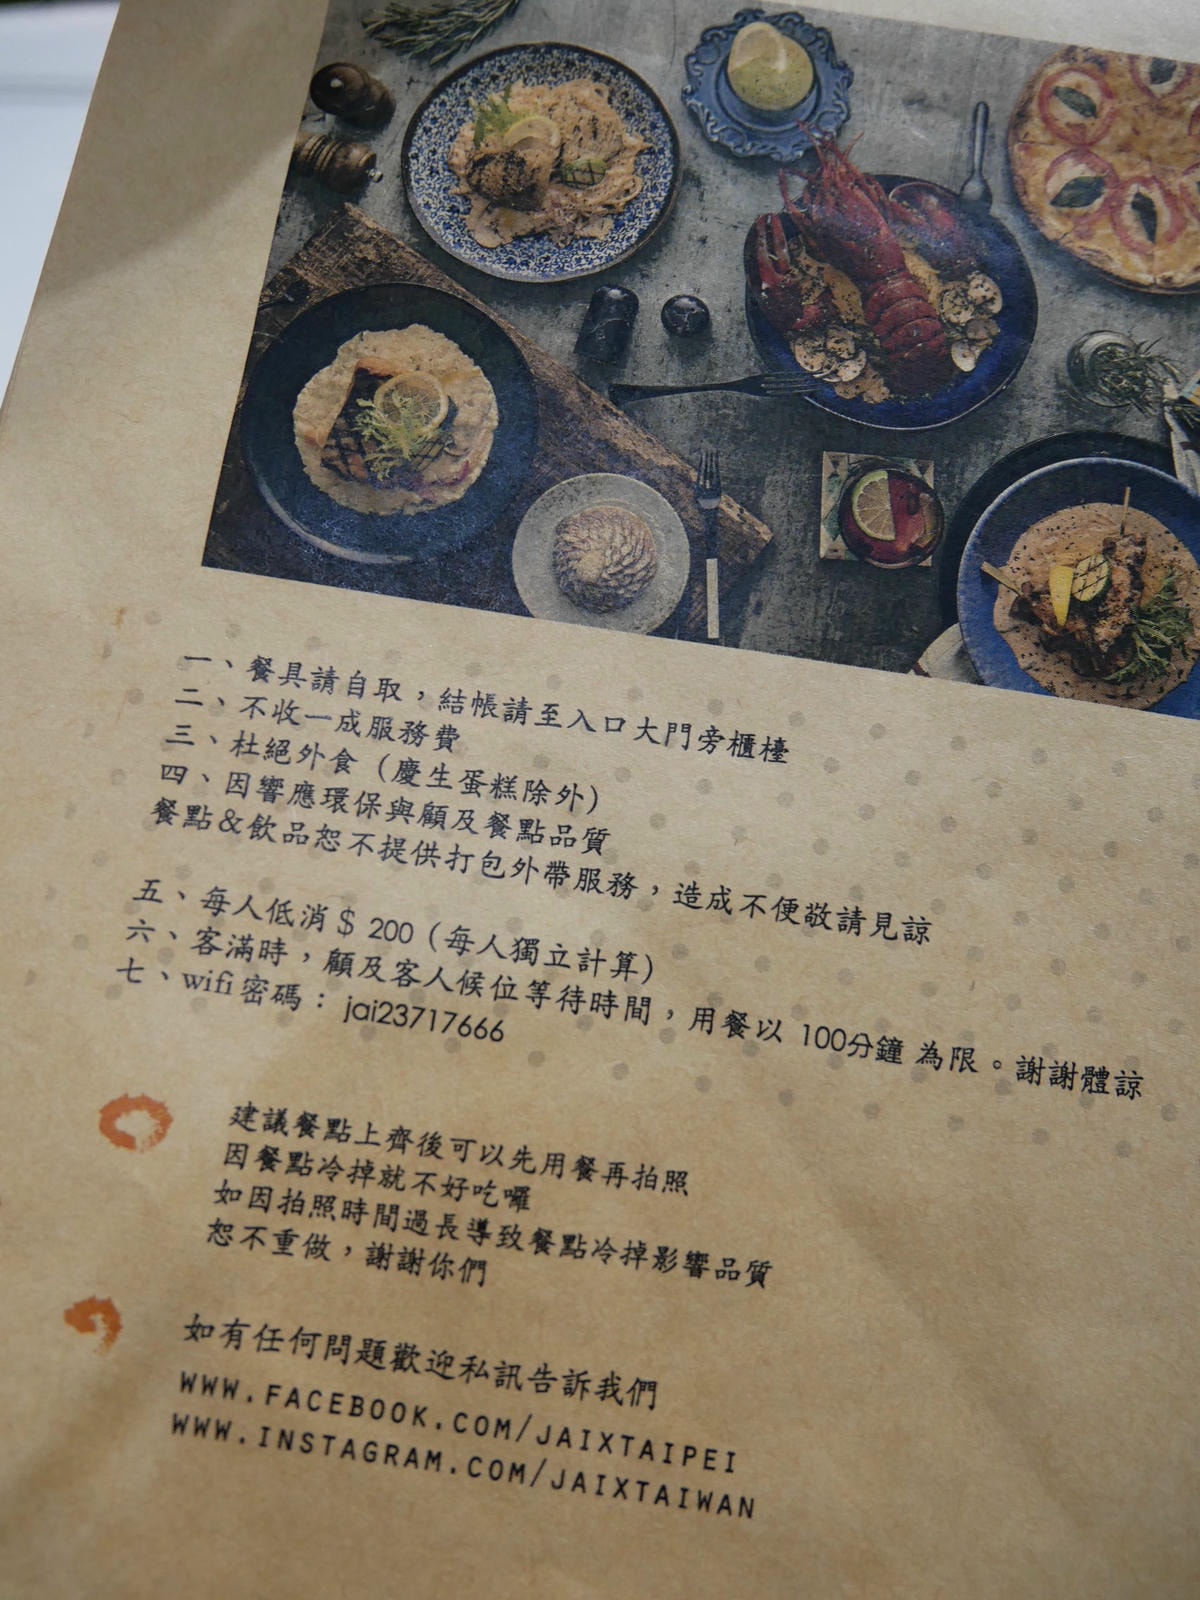 一、餐具請自取，結帳請至入口大門旁櫃檯
二、不收一成服務費
三、杜絕外食（慶生蛋糕除外）
四、因響應環保與顧及餐點品質
餐點&飲品恕不提供打包外帶服務，造成不便敬請見諒
五、每人低消$ 200（每人獨立計算）
六、客滿時，顧及客人候位等待時間，用餐以 100分鐘 為限。謝謝體諒
七、wifi密碼：jai23717666
建議餐點上齊後可以先用餐再拍照
因餐點冷掉就不好吃囉
如因拍照時間過長導致餐點冷掉影響品質
恕不重做，謝謝你們
如有任何問題歡迎私訊告訴我們
WWW.FACEBOOK.COM/JAIXTAIPEI
WWW.INSTAGRAM.COM/JAIXTAIWAN